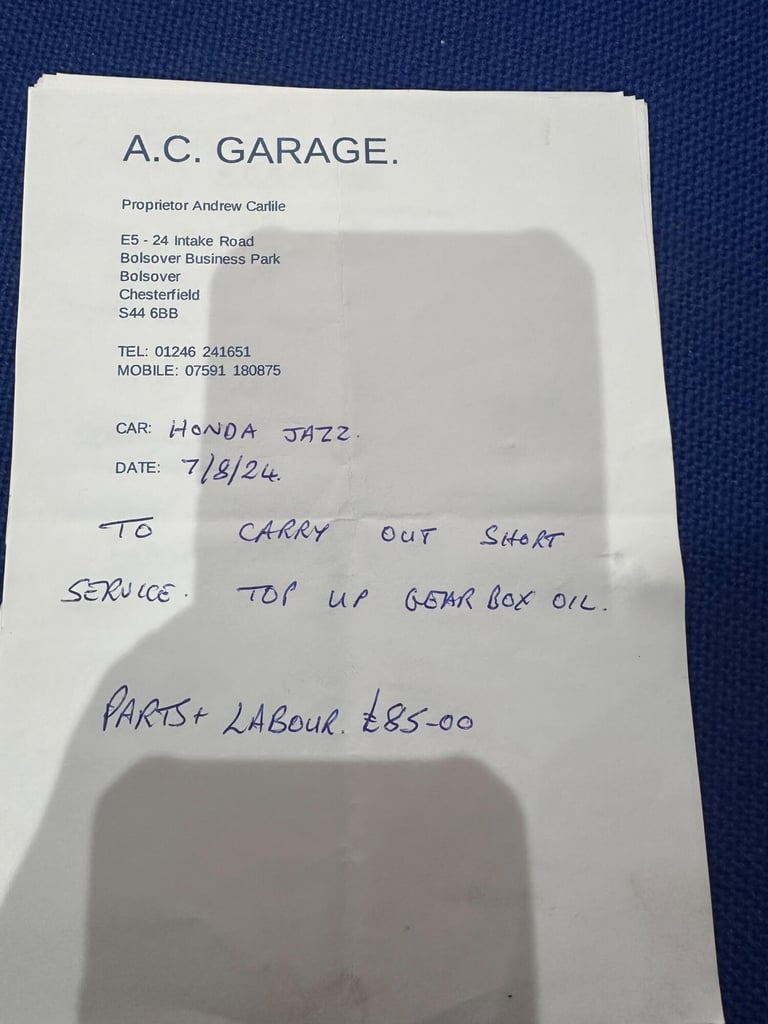 A.C. GARAGE.
Proprietor Andrew Carlile
E5 - 24 Intake Road
Bolsover Business Park
Bolsover
Chesterfield
S44 6BB
TEL: 01246 241651
MOBILE: 07591 180875
CAR: HONDA JAZZ.
DATE: 7/8/24.
TO CARRY OUT SHORT
SERVICE. TOP UP GEAR BOX OIL.
PARTS + LABOUR. £85-00